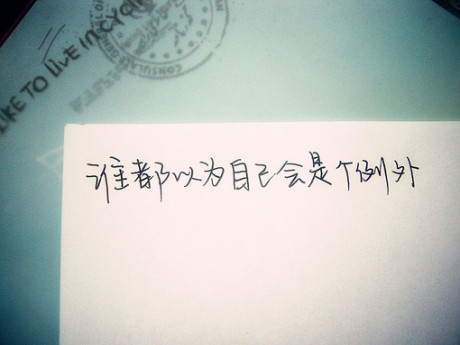 LIKE TO LIVE IN
谁都以为自己会是个例外